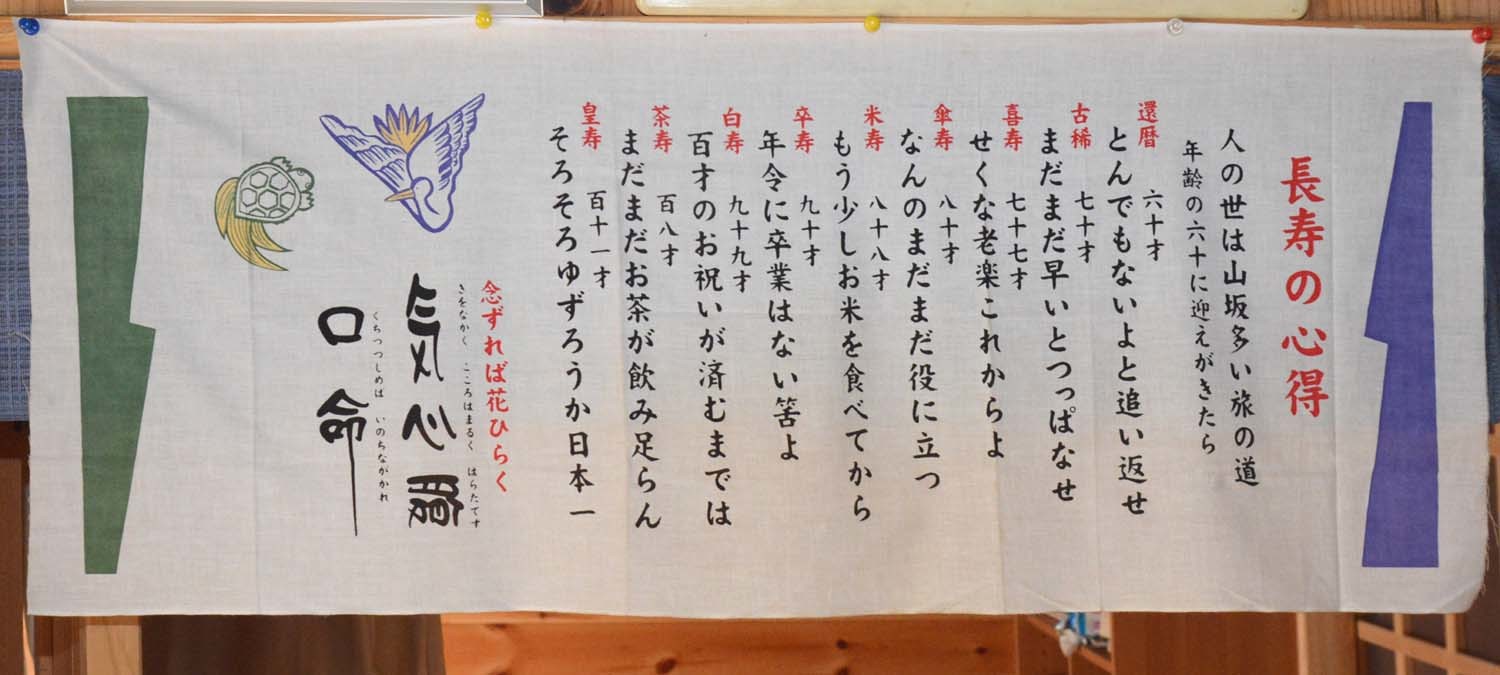 長寿の心得
人の世は山坂多い旅の道
年齢の六十に迎えがきたら
還暦 六十才
とんでもないよと追い返せ
古稀 七十才
まだまだ早いとつっぱなせ
喜寿 七十七才
せくな老楽これからよ
傘寿 八十才
なんのまだまだ役に立つ
米寿 八十八才
もう少しお米を食べてから
卒寿 九十才
年令に卒業はない筈よ
白寿 九十九才
百才のお祝いが済むまでは
茶寿 百八才
まだまだお茶が飲み足らん
皇寿 百十一才
そろそろゆずろうか日本一
念ずれば花ひらく
きをなかく こころはまるく はらたてす
気心腹
くちつつしめは いのちながかれ
口命